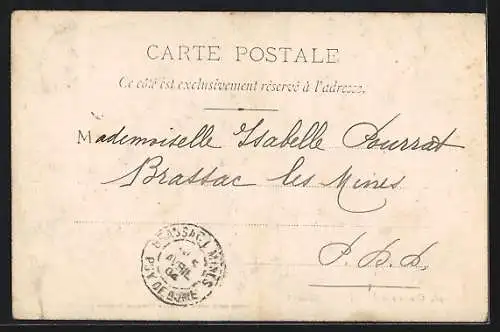 CARTE POSTALE
Ce côté est exclusivement réservé à l'adresse.
Mademoiselle Isabelle Pourrat
Brassac les Mines
P. D. D.
BRASSAC LES MINES
AVRIL
04
PUY DE DOME